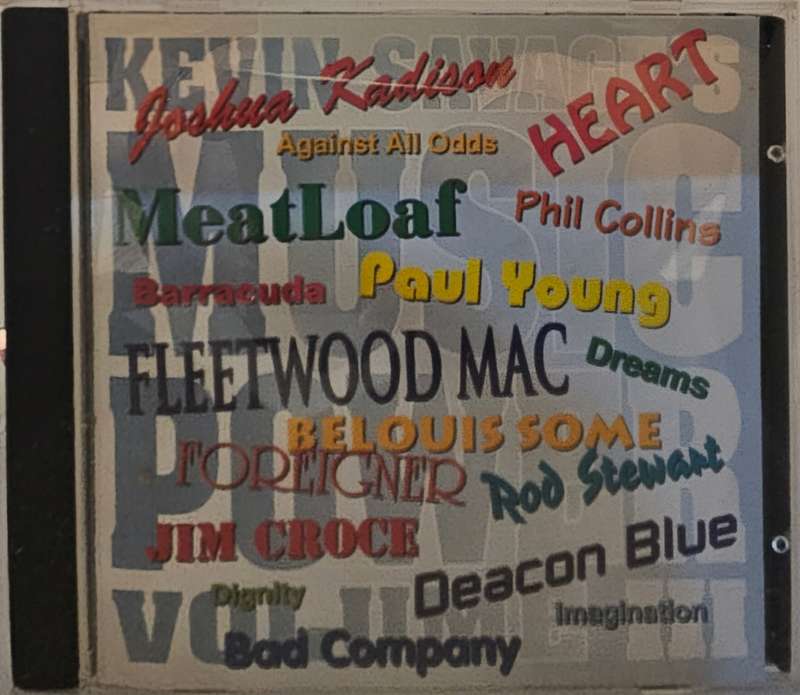 KEVIN SAVAGE'S
Joshua Kadison
HEART
Against All Odds
MUSIC
MeatLoaf
Phil Collins
Barracuda
Paul Young
FLEETWOOD MAC
Dreams
POWER
BELOUIS SOME
FOREIGNER
Rod Stewart
JIM CROCE
Deacon Blue
Dignity
Imagination
VOLUME
Bad Company